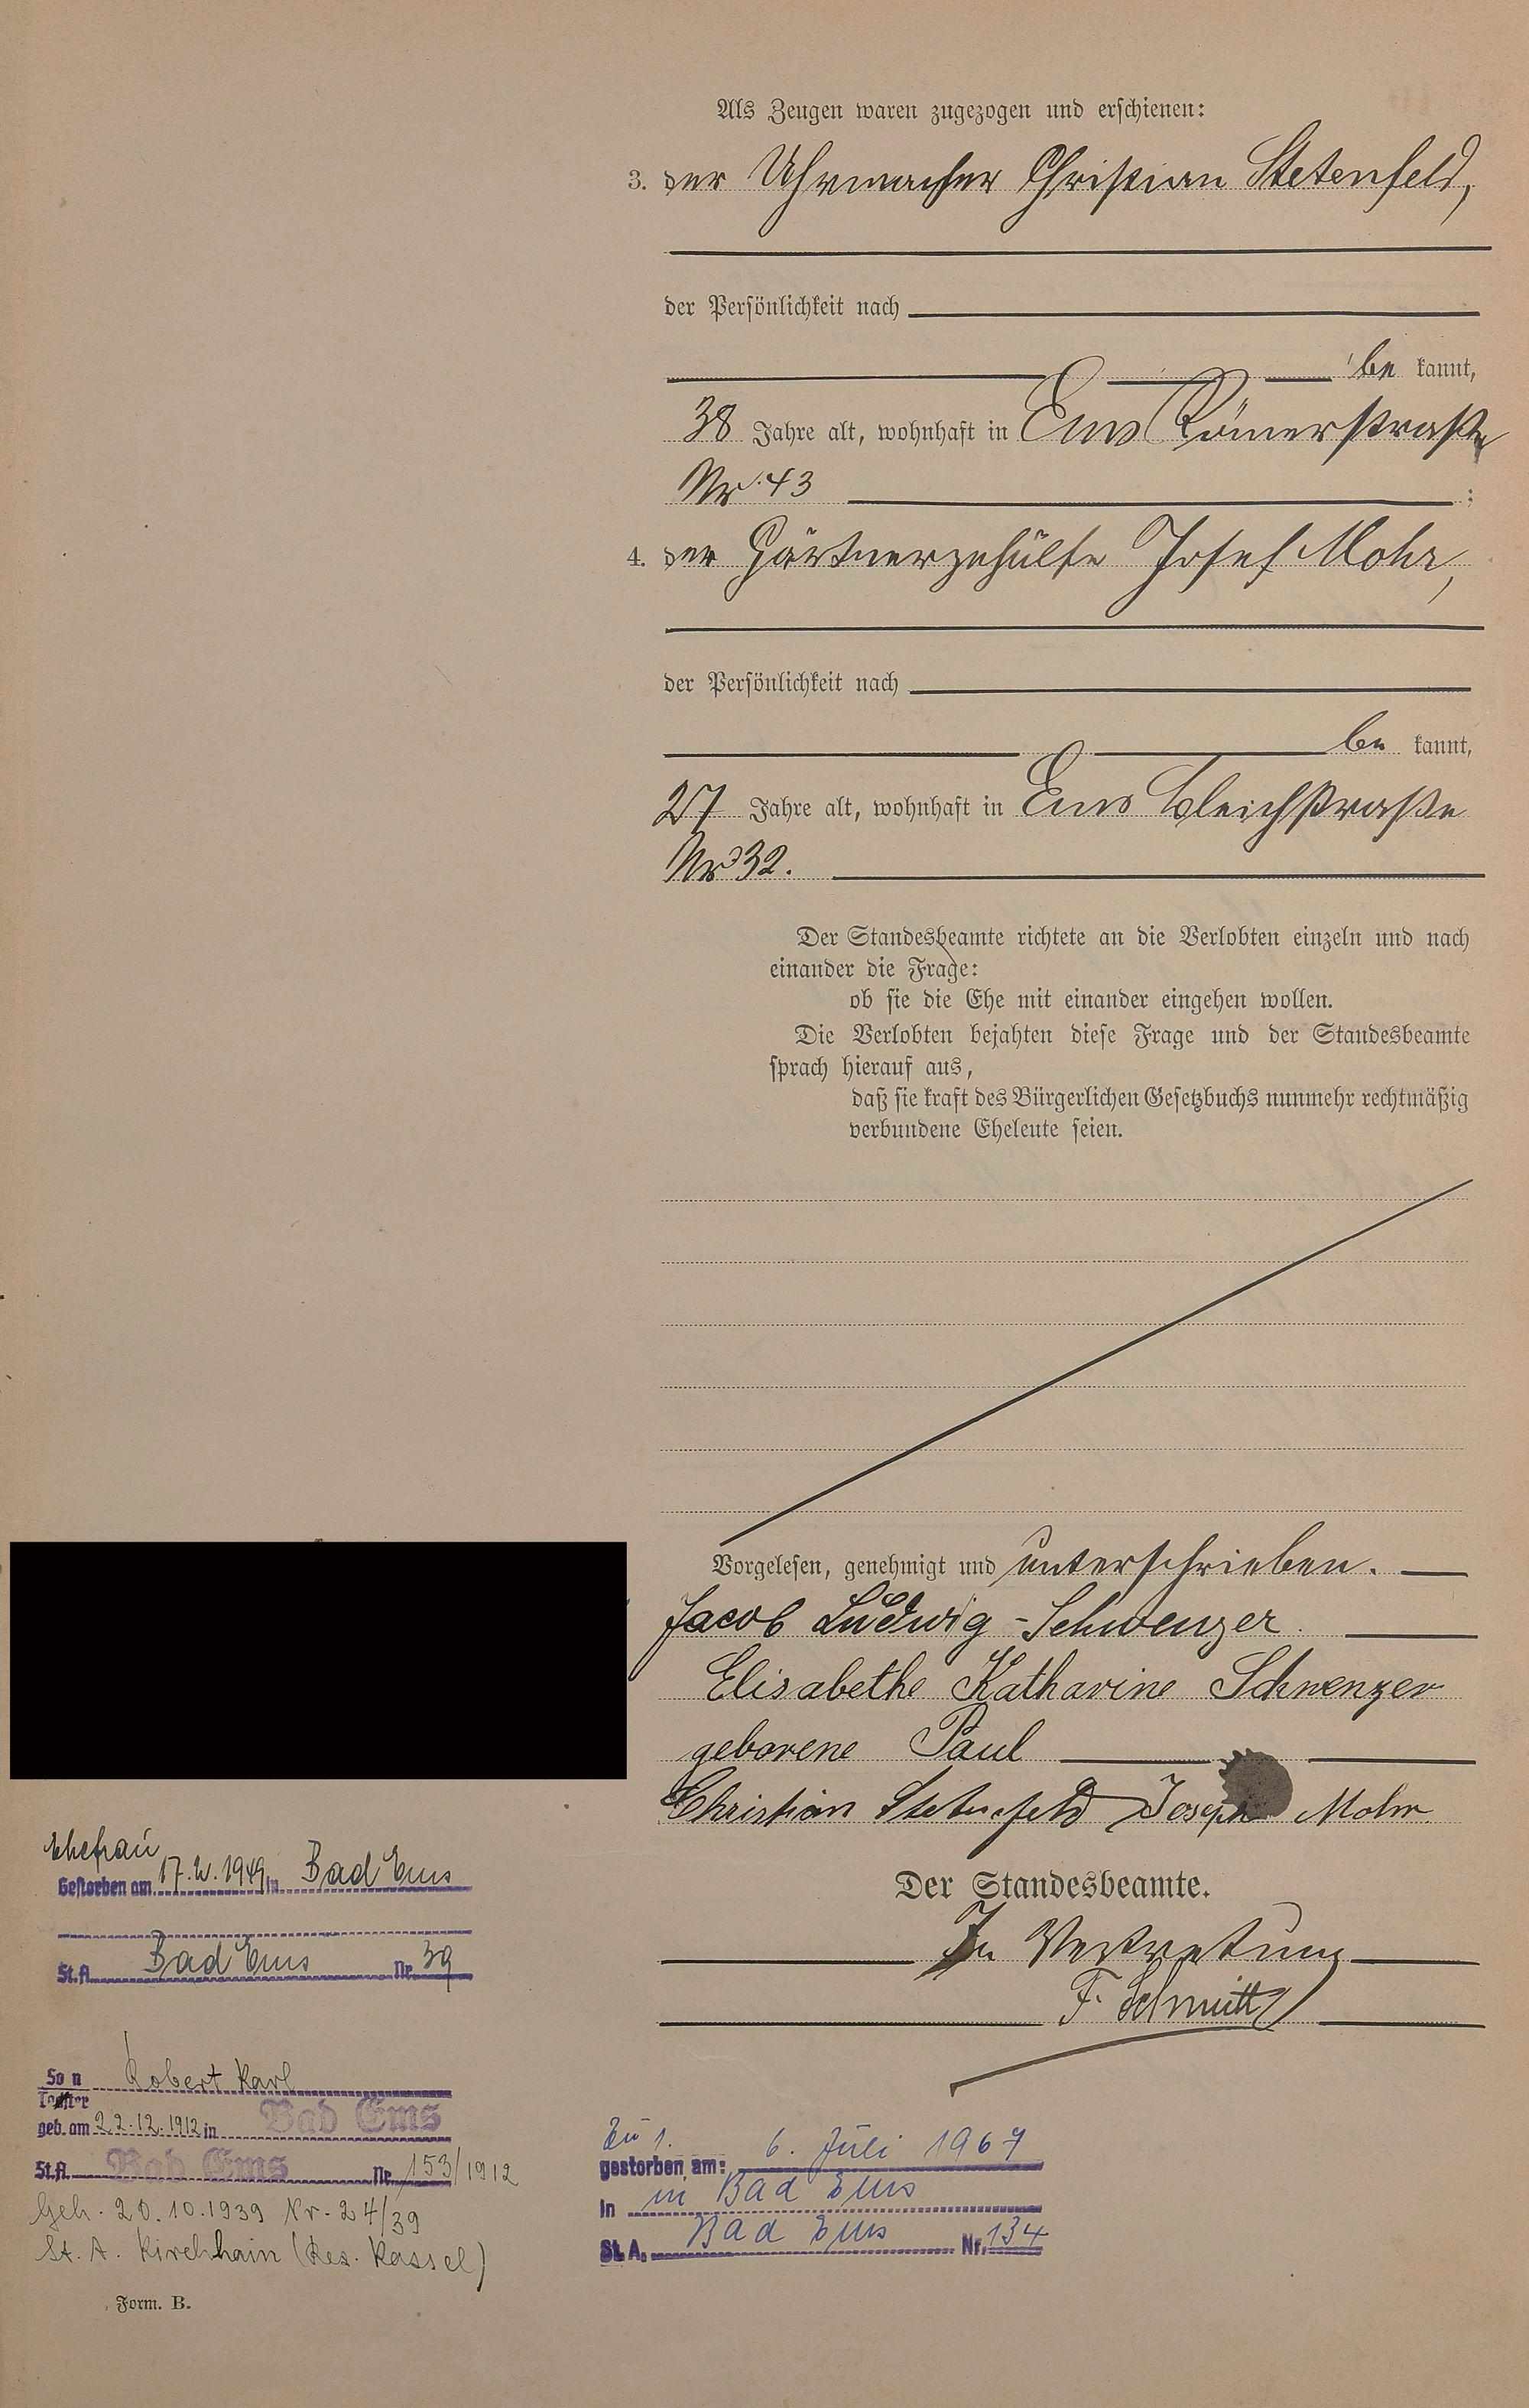 Als Zeugen waren zugezogen und erschienen:
3. der Uhrmacher Christian Stetenfeld,
der Persönlichkeit nach
be kannt,
38 Jahre alt, wohnhaft in Ems Römerstraße
Nr. 43 ;
4. der Gärtnergehülfe Josef Mohr,
der Persönlichkeit nach
be kannt,
27 Jahre alt, wohnhaft in Ems Bleichstraße
Nr 32.
Der Standesbeamte richtete an die Verlobten einzeln und nach
einander die Frage:
ob sie die Ehe mit einander eingehen wollen.
Die Verlobten bejahten diese Frage und der Standesbeamte
sprach hierauf aus,
daß sie kraft des Bürgerlichen Gesetzbuchs nunmehr rechtmäßig
verbundene Eheleute seien.
Vorgelesen, genehmigt und unterschrieben.
Jacob Ludwig Schwenzer.
Elisabethe Katharine Schwenzer
geborene Paul
Christian Stetenfeld Joseph Mohr.
Der Standesbeamte.
In Vertretung
F. Schmitt
Ehefrau
Gestorben am 17. 1949 in Bad Ems
St.A. Bad Ems Nr. 39
Sohn Robert Karl
Tochter
geb. am 22.12.1912 in Bad Ems
St.A. Bad Ems Nr. 153/1912
Geh. 20.10.1939 Nr. 24/39
St. A. Kirchhain (Bez. Kassel)
Zu 1.
gestorben am: 6. Juli 1967
in in Bad Ems
St. A. Bad Ems Nr. 134
Form. B.